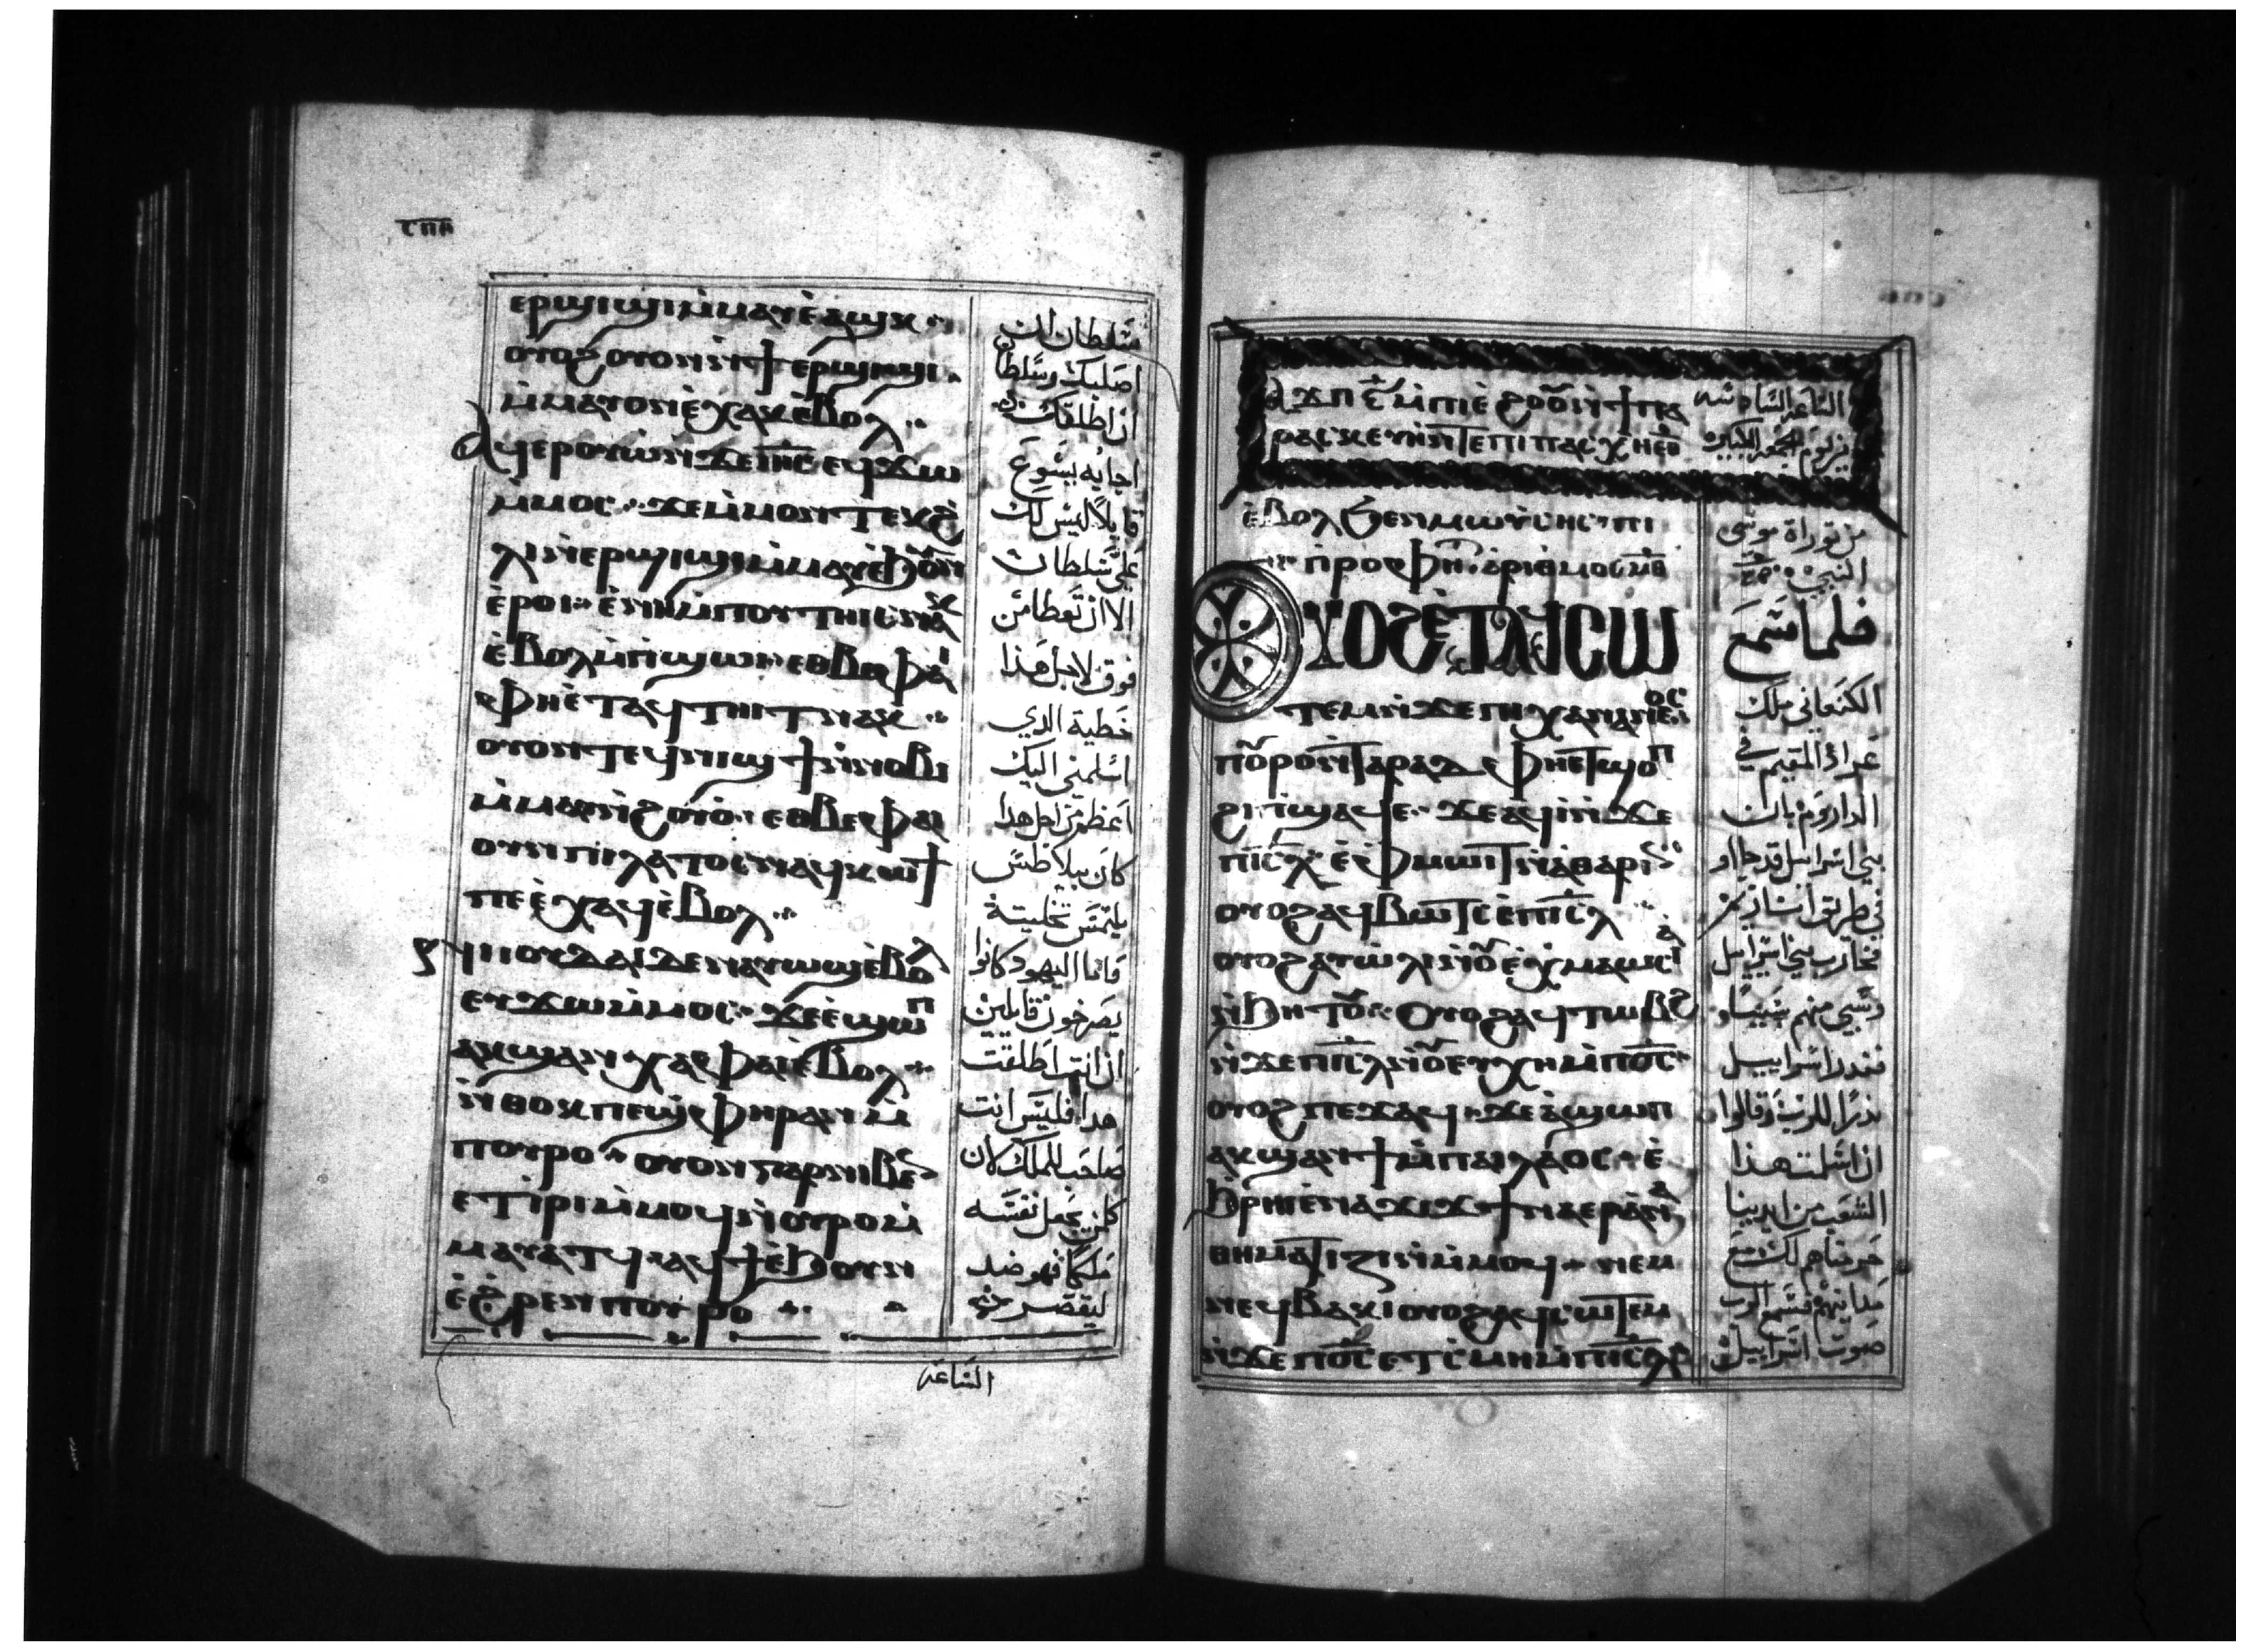 ⲥⲡⲏ
ⲉⲣϣⲓϣⲓ ⲙ̀ⲙⲁⲩ ⲉ̀ⲁϣⲕ
ⲟⲩⲟϩ ⲟⲩⲟⲛ ⲛ̀ϯ ⲉⲣϣⲓϣⲓ
ⲙ̀ⲙⲁⲩ ⲟⲛ ⲉ̀ⲭⲁⲕ ⲉ̀ⲃⲟⲗ
ⲁϥⲉⲣⲟⲩⲱ ⲛ̀ϫⲉ ⲓⲏ̅ⲥ̅ ⲉϥϫⲱ
ⲙ̀ⲙⲟⲥ ϫⲉ ⲙ̀ⲙⲟⲛ ⲧⲉⲕ ϩ̀
ⲗⲓ ⲛ̀ⲉⲣϣⲓϣⲓ ⲙ̀ⲙⲁⲩ ⲉ̀ϧⲟⲩⲛ
ⲉ̀ⲣⲟⲓ ⲉ̀ⲛⲏ ⲙ̀ⲡⲟⲩⲧⲏⲓⲥ ⲛⲁⲕ
ⲉ̀ⲃⲟⲗ ⲙ̀ⲡ̀ϣⲱⲓ ⲉⲑⲃⲉ ⲫⲁⲓ
ⲫⲏ ⲉ̀ⲧⲁϥⲧⲏⲓⲧ ⲛⲁⲕ
ⲟⲩⲟⲛⲧⲉϥ ⲛⲓϣϯ ⲛ̀ⲛⲟⲃⲓ
ⲙ̀ⲙⲁⲩ ⲛ̀ϩⲟⲩⲟ̀ ⲉⲑⲃⲉ ⲫⲁⲓ
ⲟⲩⲛ ⲡⲓⲗⲁⲧⲟⲥ ⲛⲁϥⲕⲱϯ
ⲡⲉ ⲉ̀ⲭⲁϥ ⲉ̀ⲃⲟⲗ
ⲛⲓⲓⲟⲩⲇⲁⲓ ⲇⲉ ⲛⲁⲩⲱϣ ⲉ̀ⲃⲟⲗ
ⲉⲩϫⲱ ⲙ̀ⲙⲟⲥ ϫⲉ ⲉ̀ϣⲱⲡ
ⲁⲕϣⲁⲛⲭⲁ ⲫⲁⲓ ⲉ̀ⲃⲟⲗ
ⲛ̀ⲑⲟⲕ ⲡⲉ ⲡ̀ϣⲫⲏⲣ ⲁⲛ ⲙ̀
ⲡⲟⲩⲣⲟ ⲟⲩⲟⲛ ⲅⲁⲣ ⲛⲓⲃⲉⲛ
ⲉⲧⲓ̀ⲣⲓ ⲙ̀ⲙⲟϥ ⲛ̀ⲟⲩⲣⲟ ⲙ̀
ⲙⲁⲩⲁⲧϥ ⲁϥϯ ⲉ̀ϧⲟⲩⲛ
ⲉ̀ϩ̀ⲣⲉⲛ ⲡⲟⲩⲣⲟ
سلطان ان
اصلبك وسلطان
ان اطلقك
اجابه يسوع
قايلا ليس لك
على سلطان
الا ان تعطا من
فوق لاجل هذا
خطية الدي
اسلمني اليك
اعظم من اجل هدا
كان بيلاطس
يلتمس تخليته
فاما اليهود كانوا
يصرخون قايلين
ان انت اطلقت
هدا فليس انت
صاحب للملك لان
كلمن يجعل نفسه
ملكا فهو ضد
ليقصر
الساعة
ⲁϫⲡ ⲋ̅ ⲙ̀ⲡⲓⲉ̀ϩⲟⲟⲩ ⲛ̀ϯⲡⲁ
ⲣⲁⲥⲕⲉⲩⲏ ⲛ̀ⲧⲉ ⲡⲓⲡⲁⲥⲭⲏ ⲉⲑ
الساعة السادسه
من يوم الجمعة الكبيرة
ⲉ̀ⲃⲟⲗϧⲉⲛ ⲙⲱⲩ̀ⲥⲏⲥ ⲡⲓ
ⲡ̀ⲣⲟⲫⲏ ⲁⲣⲓⲑⲙⲟⲥ
ⲟⲩⲟϩ ⲉ̀ⲧⲁϥⲥⲱ
ⲧⲉⲙ ⲛ̀ϫⲉ ⲡⲓⲭⲁⲛⲁⲛⲉⲟⲥ
ⲡⲟⲩⲣⲟ ⲛ̀ⲧⲁⲣⲁⲇ ⲫⲏ ⲉⲧϣⲟⲡ
ϩⲓ ⲡ̀ϣⲁϥⲉ ϫⲉ ⲁϥⲓ̀ ⲛ̀ϫⲉ
ⲡⲓⲥ̅ⲗ̅ ⲉ̀ⲫⲙⲱⲓⲧ ⲛ̀ⲁⲑⲁⲣⲓⲛ
ⲟⲩⲟϩ ⲁϥⲃⲱⲧⲥ ⲉ̀ⲡⲓⲥ̅ⲗ̅
ⲟⲩⲟϩ ⲁⲩⲱ̀ⲗⲓ ⲛ̀ⲟⲩⲉ̀ⲭⲙⲁⲗⲱⲥⲓⲁ
ⲛ̀ϧⲏⲧⲟⲩ ⲟⲩⲟϩ ⲁϥⲧⲱⲃϩ
ⲛ̀ϫⲉ ⲡⲓⲥ̅ⲗ̅ ⲛ̀ⲟⲩⲉⲩⲭⲏ ⲙ̀ⲡϭⲥ̅
ⲟⲩⲟϩ ⲡⲉϫⲁϥ ϫⲉ ⲁ̀ϣⲱⲡ
ⲁⲕϣⲁⲛϯ ⲙ̀ⲡⲁⲓⲗⲁⲟⲥ ⲉ̀
ϧ̀ⲣⲏⲓ ⲉ̀ⲛⲁϫⲓϫ ϯⲛⲁⲉⲣⲁⲛⲁ
ⲑⲏⲙⲁⲧⲓⲍⲓⲛ ⲙ̀ⲙⲟϥ ⲛⲉⲙ
ⲛⲉϥⲃⲁⲕⲓ ⲟⲩⲟϩ ⲁϥⲥⲱⲧⲉⲙ
ⲛ̀ϫⲉ ⲡϭⲥ̅ ⲉⲧ̀ⲥⲙⲏ ⲙ̀ⲡⲓⲥ̅ⲗ̅
من توراة موسى
النبي
فلما سمع
الكنعاني ملك
عراد المقيم في
الداروم بان
بني اسراييل قد جااو
في طريق اتارين
فحارب بني اسراييل
وسبي منهم سبيا
فندر اسراييل
ندرا للرب وقالوا
ان اسلمت هذا
الشعب من ايدينا
حرمناهم لك مع
مداينهم فسمع الرب
صوت اسراييل